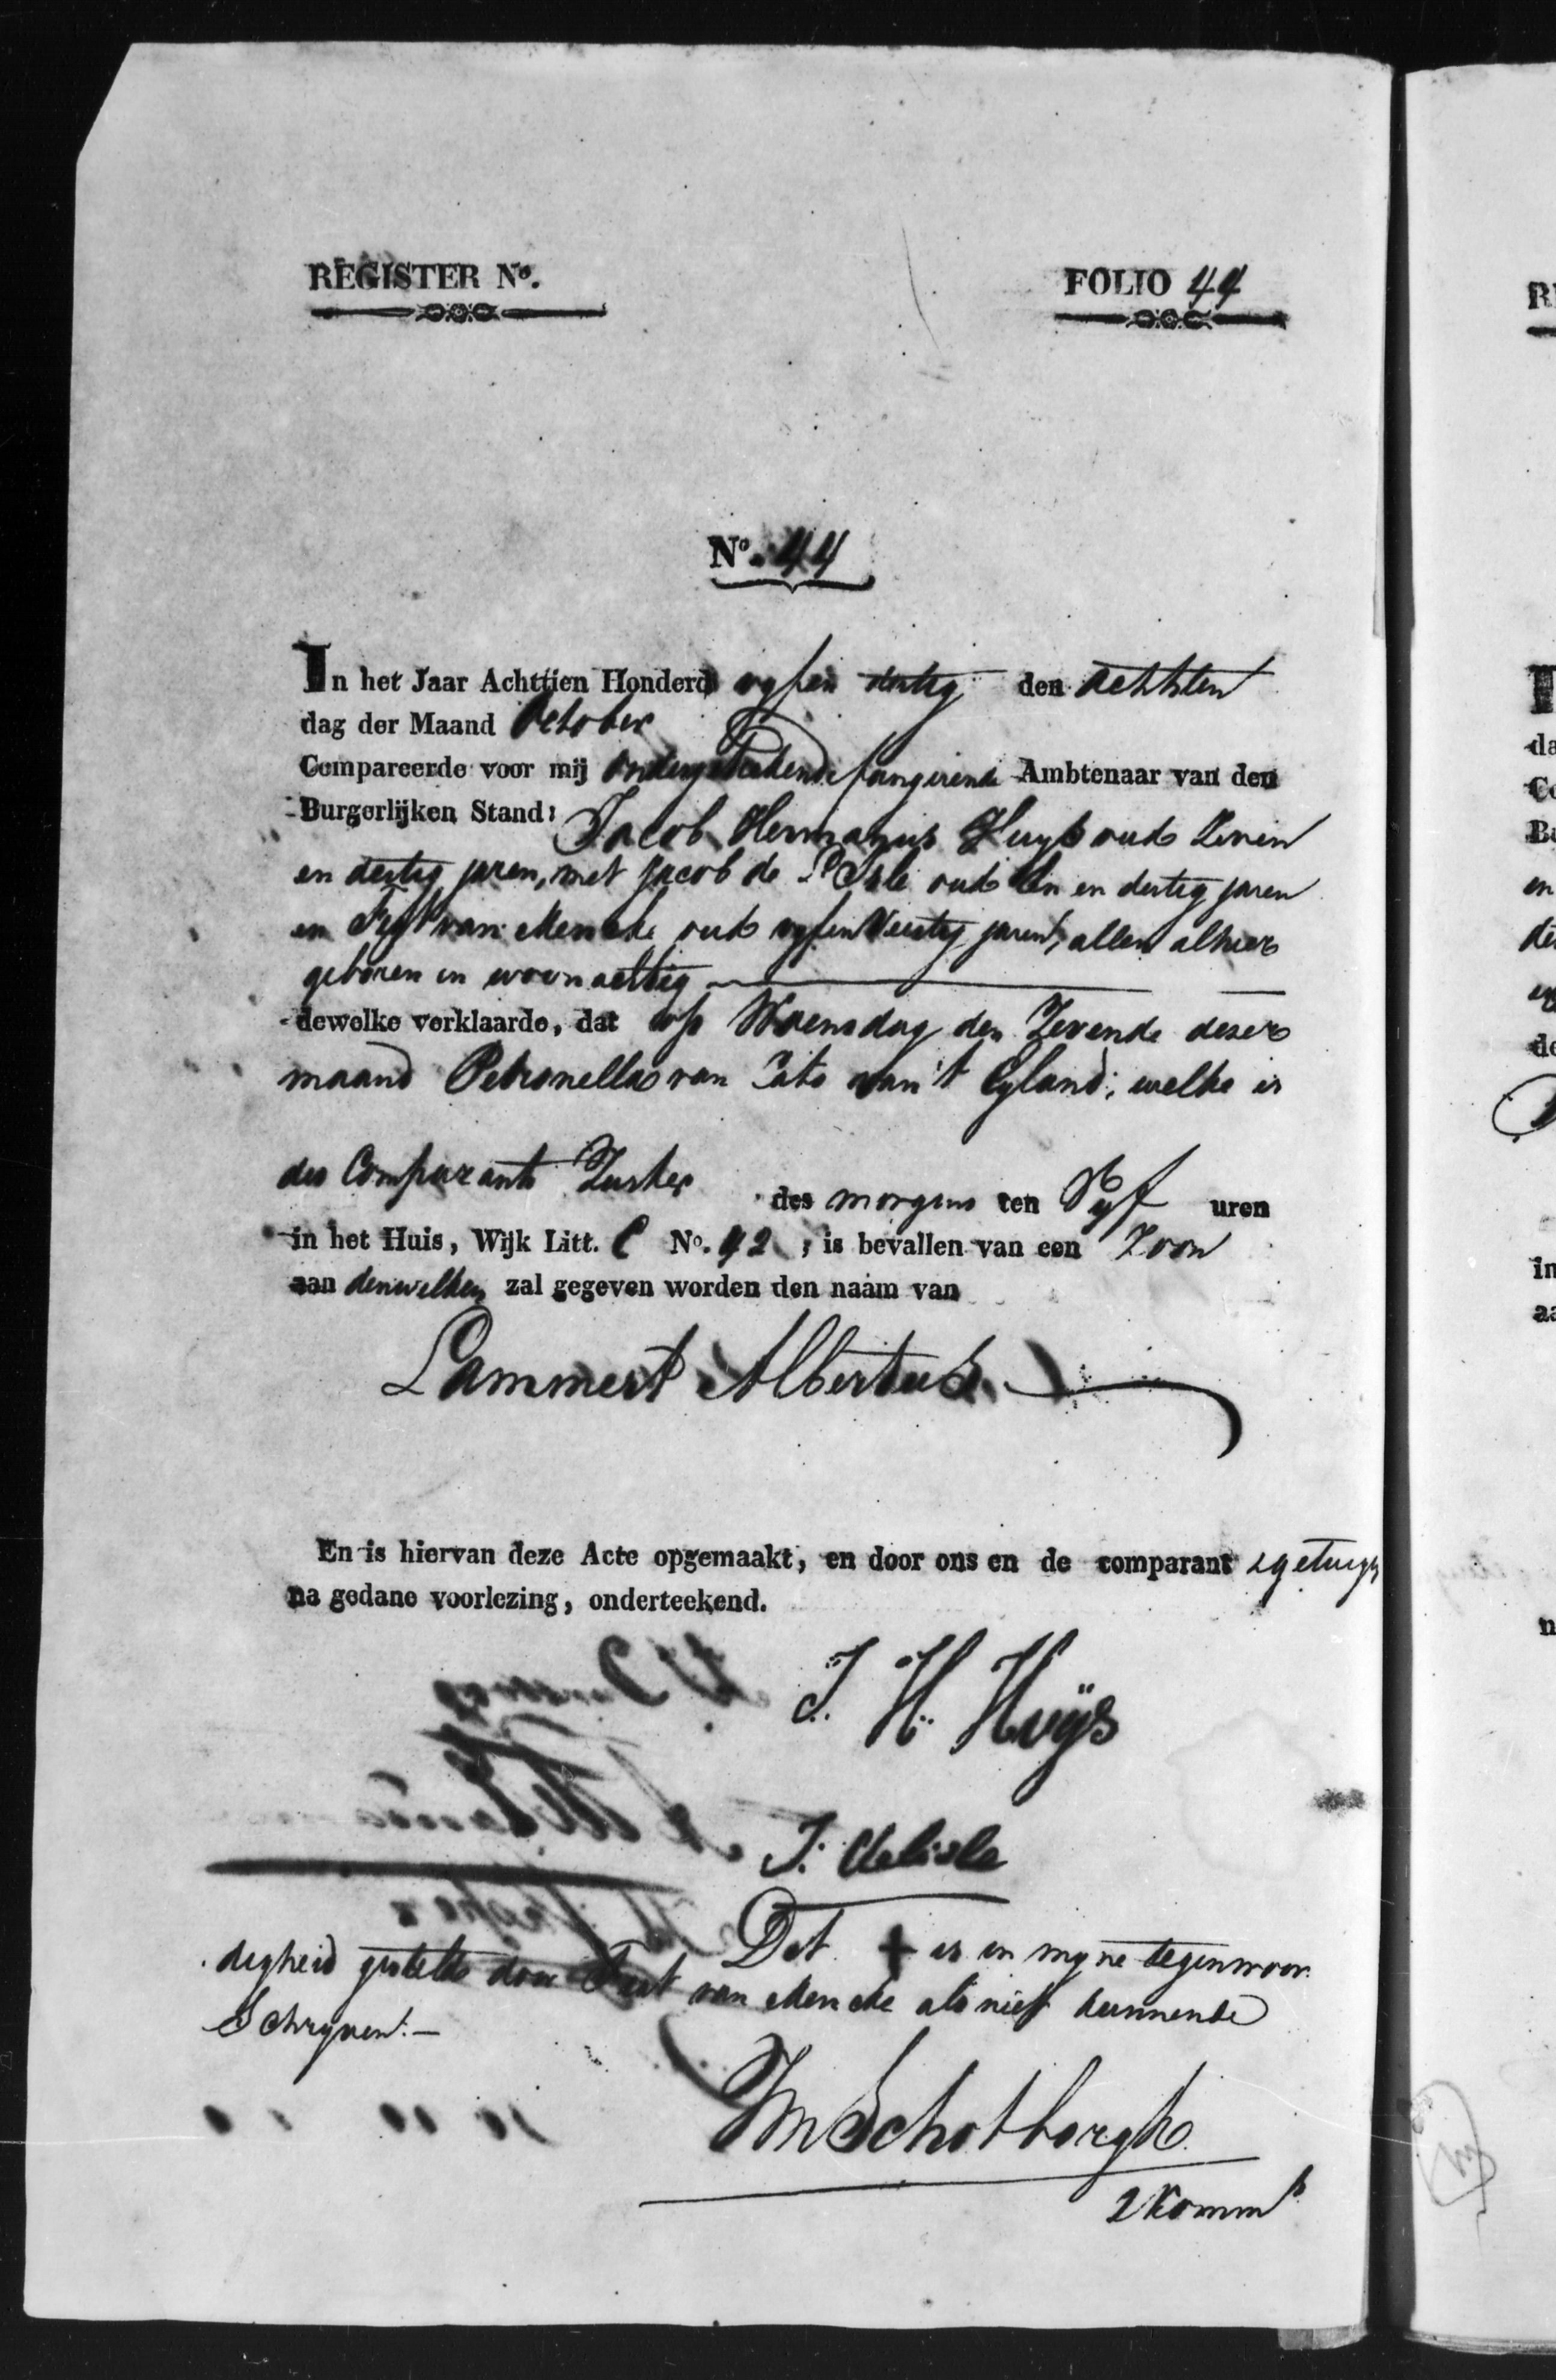 REGISTER Nº.
FOLIO 44
Nº. 44
In het Jaar Achttien Honderd vyfen dertig den Achtsten
dag der Maand October
Compareerde voor mij ondergeteekende fungerende Ambtenaar van den
Burgerlijken Stand: Jacob Hermanus Huys oud Zeven
en dertig jaren, met Jacob de L'Isle oud Een en dertig jaren
en van Mencke oud vyfenveertig jaren, allen alhier
geboren en woonachtig
dewelke verklaarde, dat op Woensdag den Zevende dezer
maand Petronella van Cato van 't Eyland; welke is
des Comparants Zuster des morgens ten Vyf uren
in het Huis, Wijk Litt. C No. 42, is bevallen van een Zoon
aan denwelken zal gegeven worden den naam van
Lammert Albertus
En is hiervan deze Acte opgemaakt, en door ons en de comparant & getuigen
na gedane voorlezing, onderteekend.
J. H. Huÿs
J. delisle
Dit + is in myne tegenwoor
digheid gesteld door van Mencke als niet kunnende
Schryven.—
Schotborgh
2 Komm s